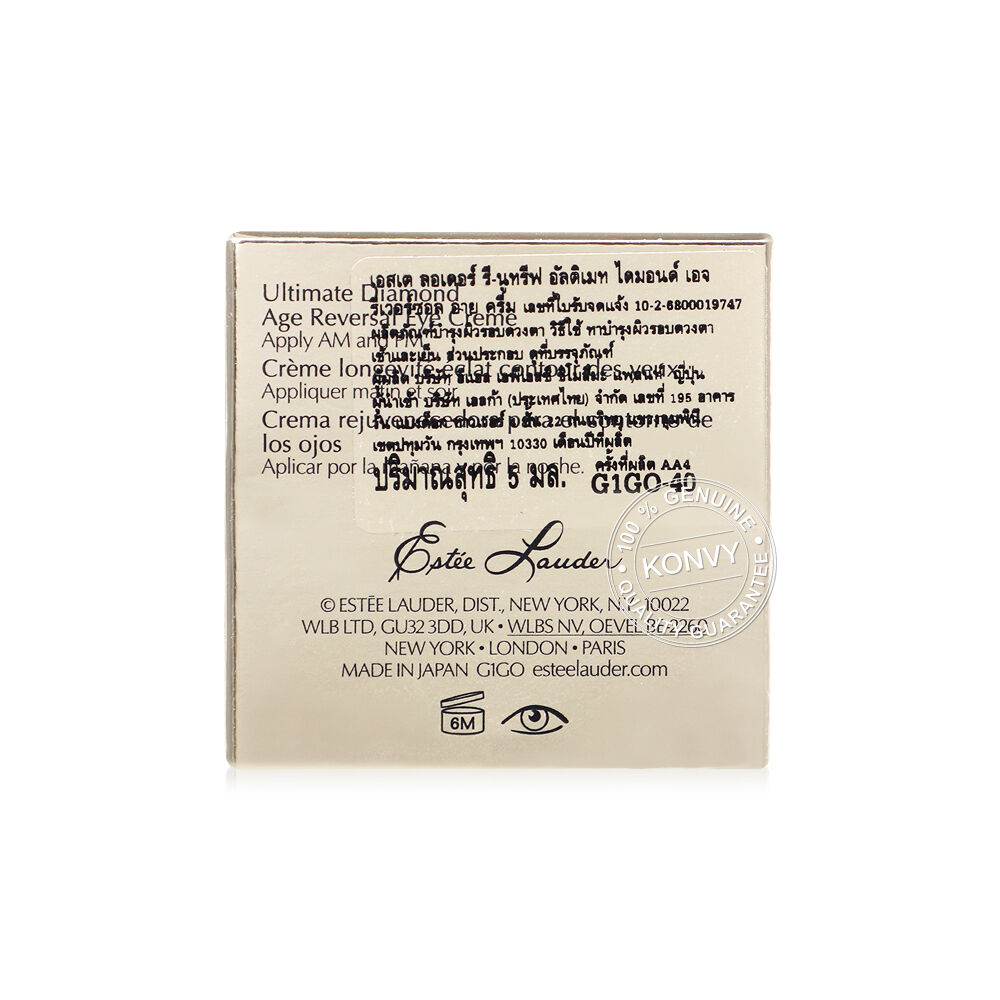 Ultimate Diamond
Age Reversal Eye Creme
Apply AM and PM
Crème longévité éclat contour des yeux
Appliquer matin et soir
Crema rejuvenecedora para el contorno de
los ojos
Aplicar por la mañana y por la noche.
เอสเต ลอเดอร์ รี-นูทรีฟ อัลติเมท ไดมอนด์ เอจ
รีเวอร์ซอล อาย ครีม เลขที่ใบรับจดแจ้ง 10-2-6800019747
ผลิตภัณฑ์บำรุงผิวรอบดวงตา วิธีใช้ ทาบำรุงผิวรอบดวงตา
เช้าและเย็น ส่วนประกอบ ดูที่บรรจุภัณฑ์
ผู้ผลิต บริษัท ญี่ปุ่น
ผู้นำเข้า บริษัท เอลก้า (ประเทศไทย) จำกัด เลขที่ 195 อาคาร
เขตปทุมวัน กรุงเทพฯ 10330 เดือนปีที่ผลิต
ครั้งที่ผลิต AA4
ปริมาณสุทธิ 5 มล. G1GO-40
Estée Lauder
© ESTĒE LAUDER, DIST., NEW YORK, N.Y. 10022
WLB LTD, GU32 3DD, UK • WLBS NV, OEVEL B6-2260
NEW YORK • LONDON • PARIS
MADE IN JAPAN G1GO esteelauder.com
6M
100 % GENUINE
KONVY
QUALITY GUARANTEE